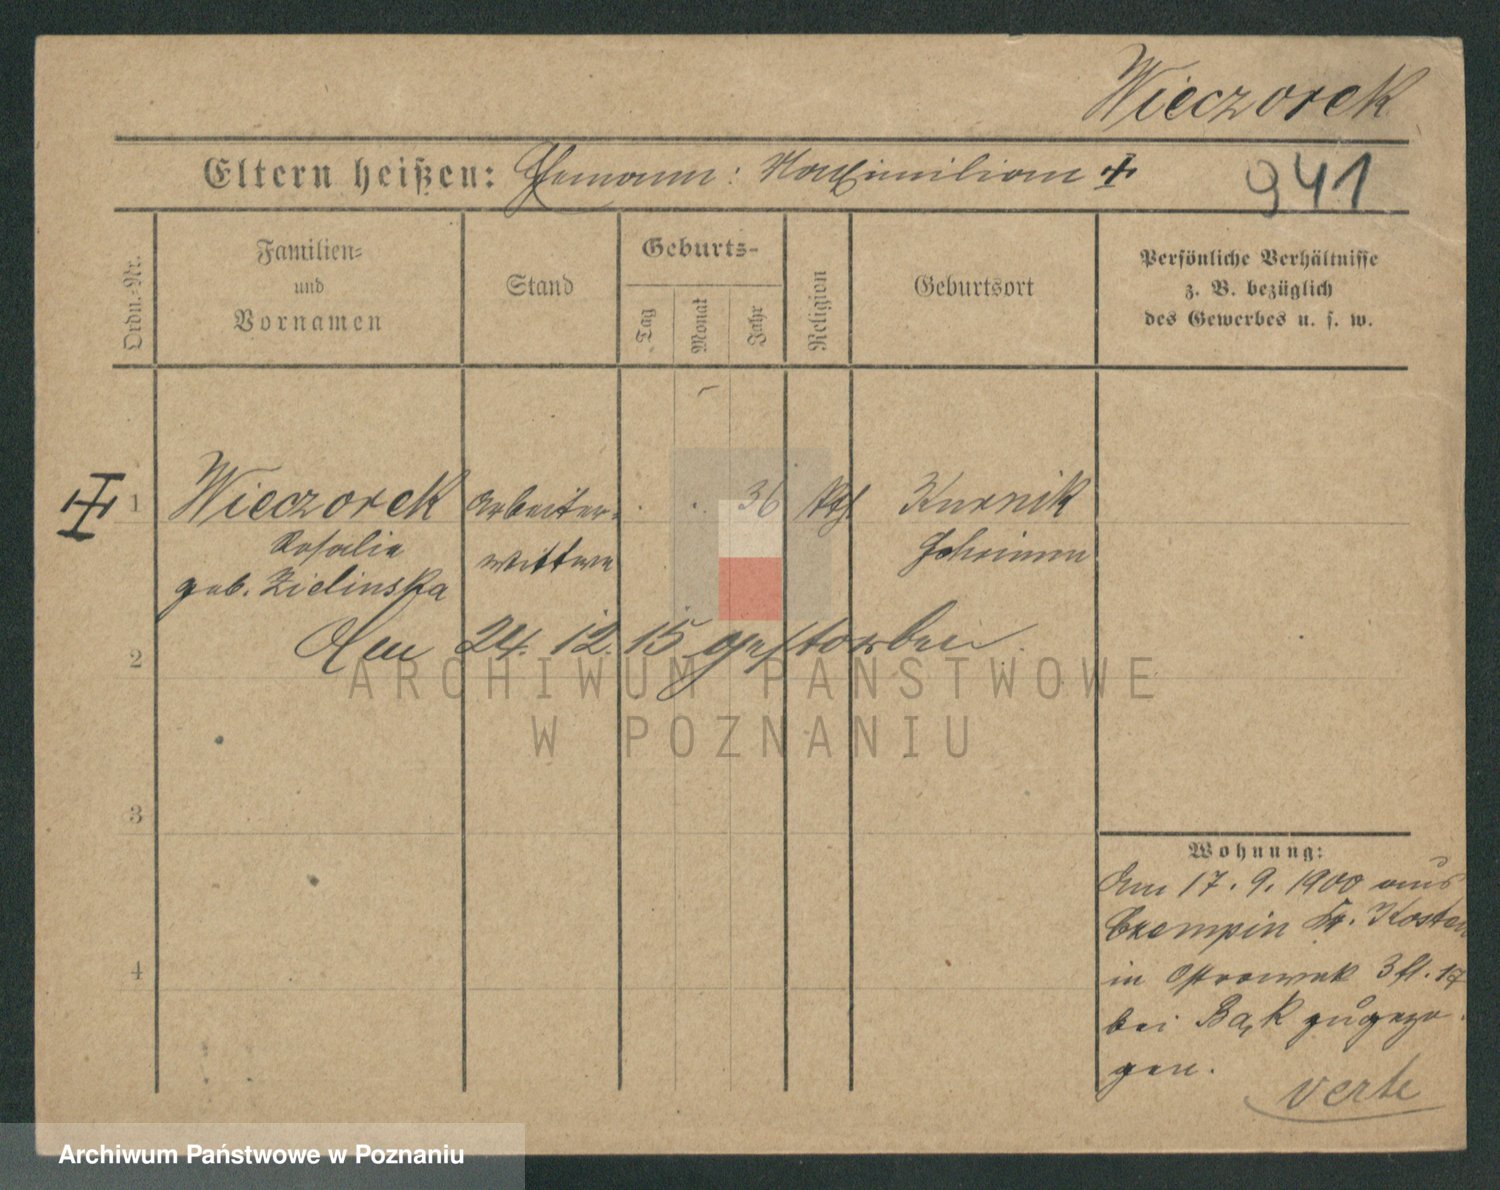 Wieczorek
Eltern heißen: Ehemann: Maximilian +
941
Ordn.-Nr.
Familien-
und
Vornamen
Stand
Geburts-
Tag
Monat
Jahr
Religion
Geburtsort
Persönliche Verhältnisse
z. B. bezüglich
des Gewerbes u. s. w.
1 Wieczorek Arbeiter- 36 Kth Kurnik
Rosalie wittwe Schrimm
geb. Zielinska
Am 24. 12. 15 gestorben
2
3
4
Wohnung:
Am 17. 9. 1900 aus
Czempin Kr. Kosten
in Ostrowek 3 fl. 17
bei Bąk zugezo
gen.
verte
ARCHIWUM PAŃSTWOWE
W POZNANIU
Archiwum Państwowe w Poznaniu